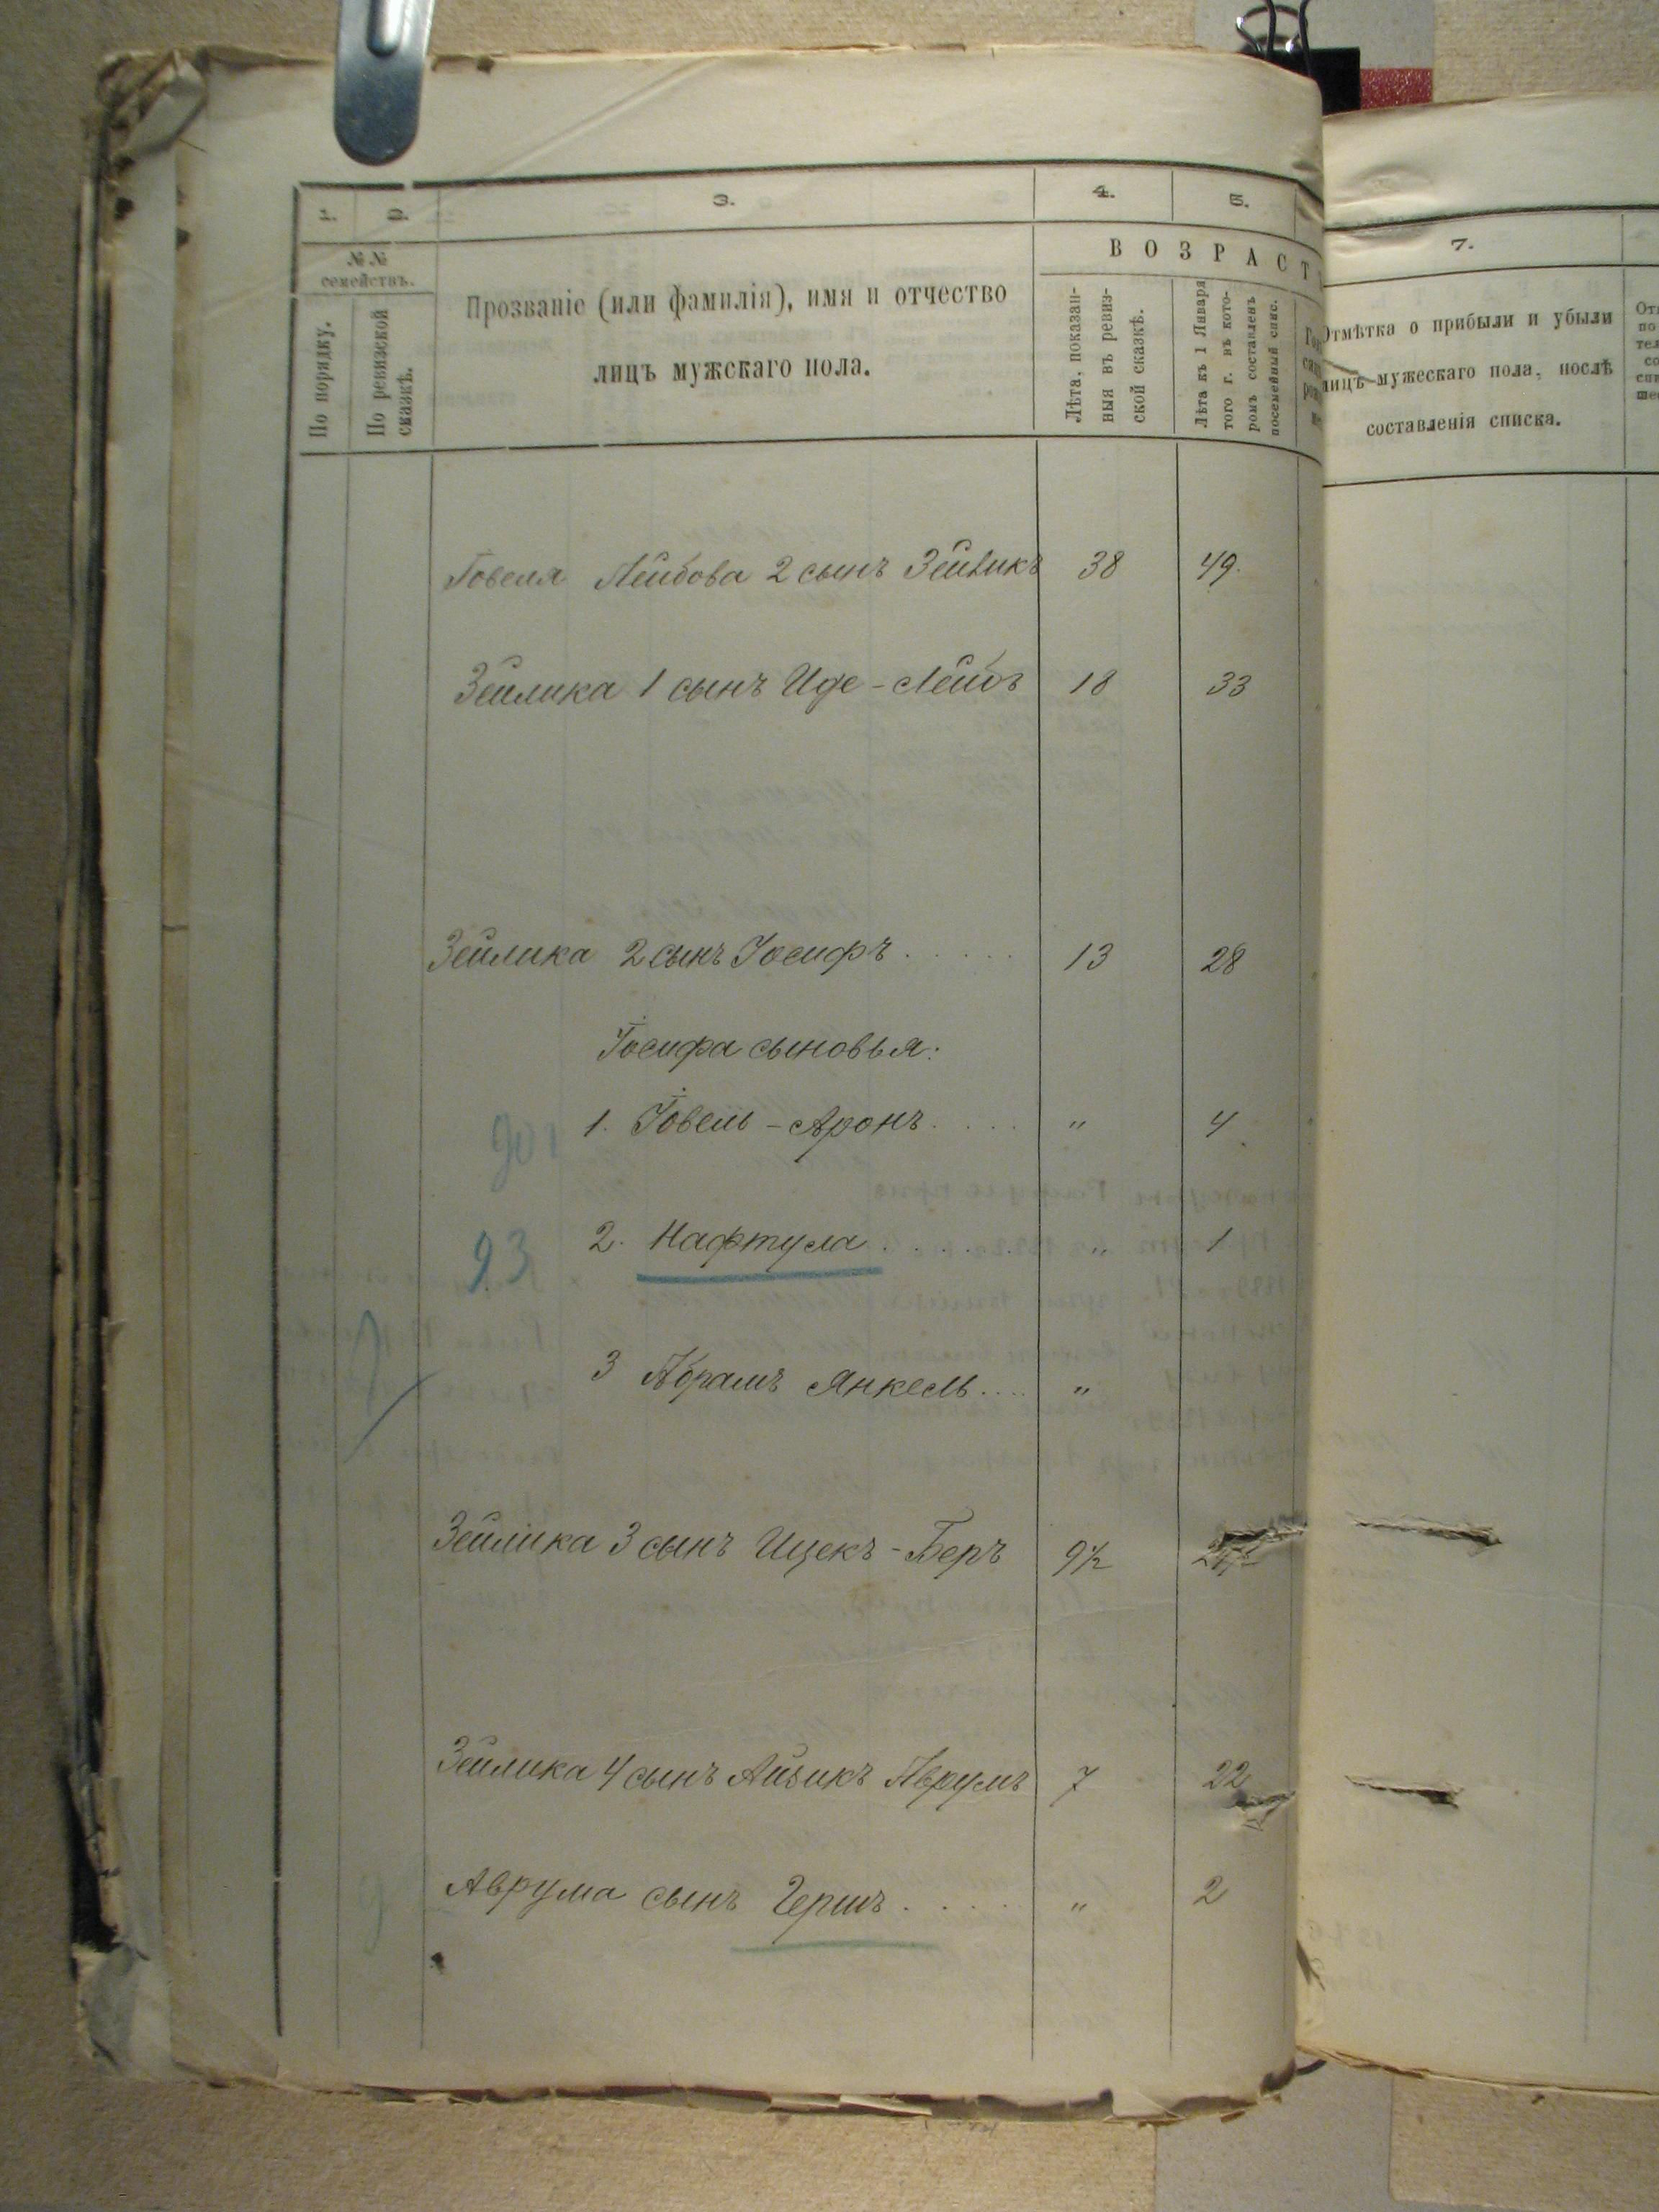 1. 2. 3. 4. 5.
№ № семействъ.
По порядку.
По ревизской сказкѣ.
Прозваніе (или фамилія), имя и отчество
лицъ мужскаго пола.
ВОЗРАСТ
Лѣта, показан-
ныя въ ревиз-
ской сказкѣ.
Лѣта къ 1 Января
того г. въ кото-
ромъ составленъ
посемейный спис.
7.
Отмѣтка о прибыли и убыли
лицъ мужескаго пола, послѣ
составленія списка.
Говеля Лейбова 2 сынъ Зейликъ 38 49.
Зейлика 1 сынъ Иде-Лейбъ 18 33
Зейлика 2 сынъ Іосифъ ...... 13 28
Іосифа сыновья:
1. Іовель-Аронъ..... " 4
93 2. Нафтула....... " 1
3 Абрамъ Янкель.... "
Зейлика 3 сынъ Ицекъ-Беръ 9½
Зейлика 4 сынъ Айзикъ Аврумъ 7 22
Аврума сынъ Гершъ..... " 2